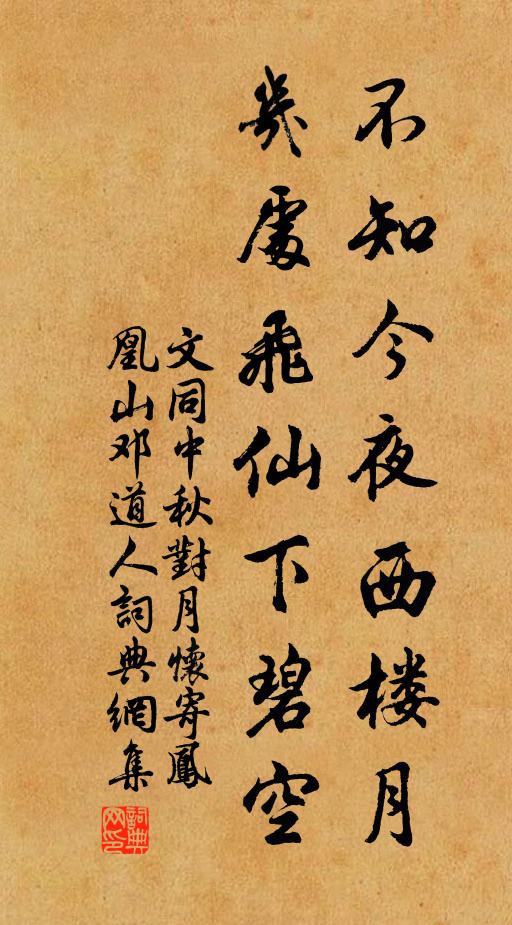 不知今夜西楼月
幾處飛仙下碧空
文同中秋對月懷寄鳳
凰山邓道人詞典網集
詞典
网印